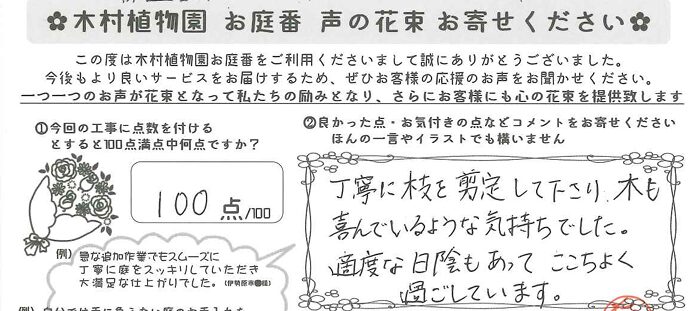 ✿木村植物園 お庭番 声の花束 お寄せください✿
この度は木村植物園お庭番をご利用くださいまして誠にありがとうございました。
今後もより良いサービスをお届けするため、ぜひお客様の応援のお声をお聞かせください。
一つ一つのお声が花束となって私たちの励みとなり、さらにお客様にも心の花束を提供致します
①今回の工事に点数を付ける
とすると100点満点中何点ですか？
100 点/100
例）
急な追加作業でもスムーズに
丁寧に庭をスッキリしていただき
大満足な仕上がりでした。（伊勢原市 様）
②良かった点・お気付きの点などコメントをお寄せください
ほんの一言やイラストでも構いません
丁寧に枝を剪定して下さり、木も
喜んでいるような気持ちでした。
適度な日陰もあって ここちよく
過ごしています。